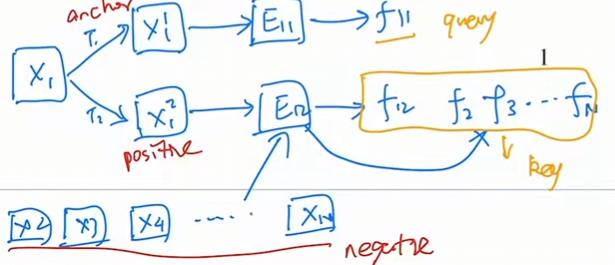 anchor
T₁ X₁¹ E₁₁ f₁₁ query
X₁
1
T₂ X₁² E₁₂ f₁₂ f₂ f₃ ... fₙ
positive
key
X2 X3 X4 ..... Xₙ
negative